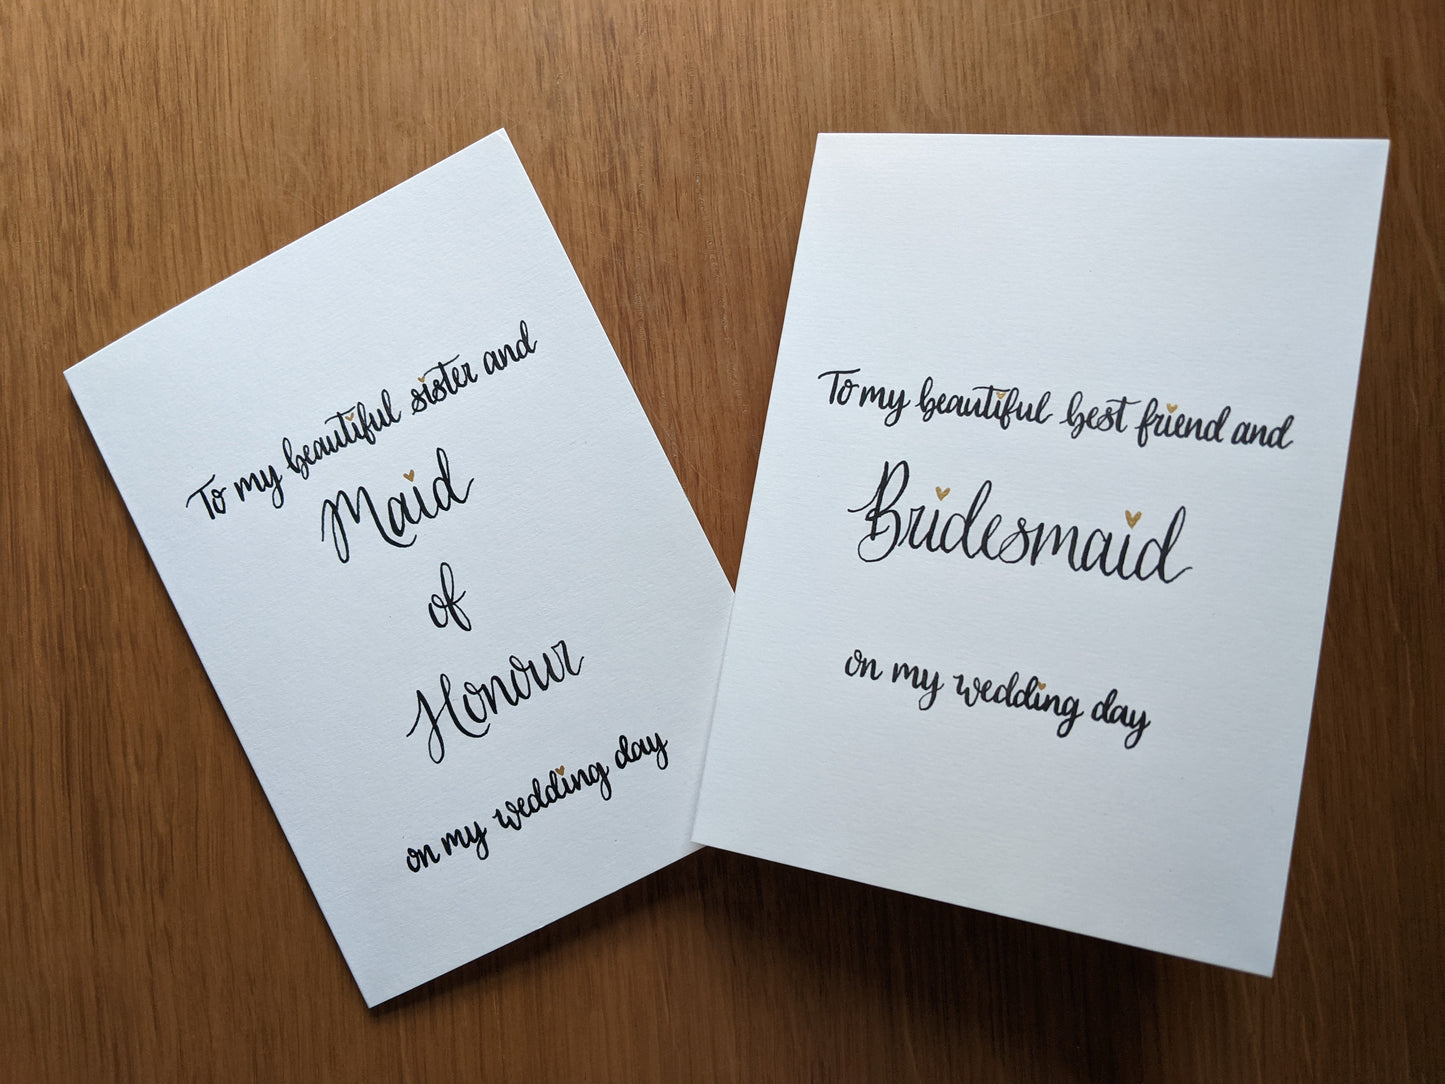 To my beautiful sister and
Maid
of
Honour
on my wedding day
To my beautiful best friend and
Bridesmaid
on my wedding day